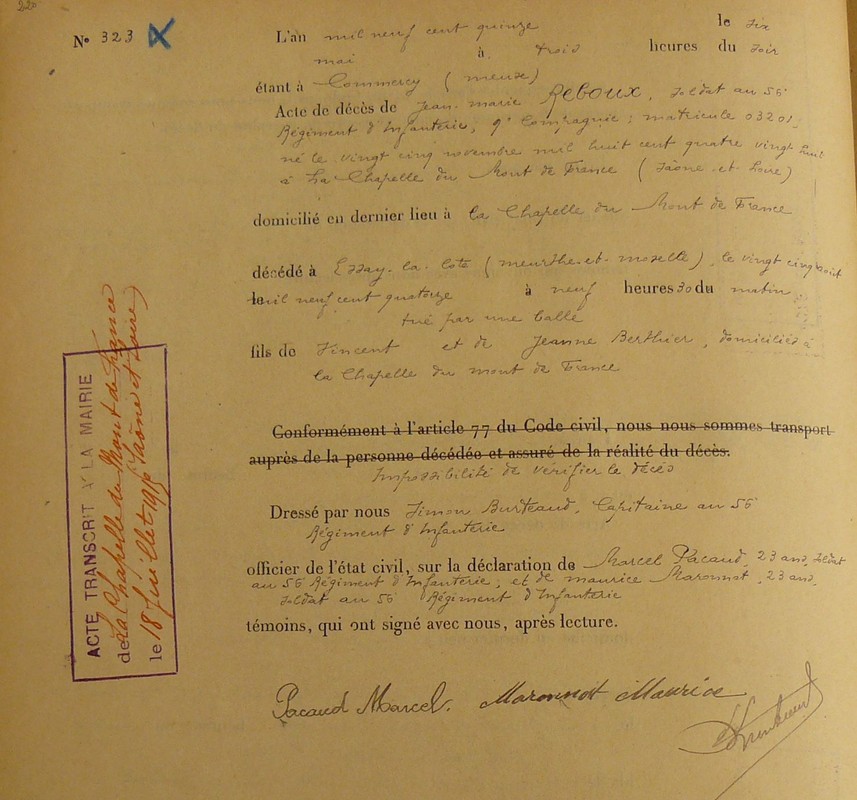 220
N° 323 X
L'an mil neuf cent quinze le six
mai à trois heures du soir
étant à Commercy (meuse)
Acte de décès de Jean-marie REBOUX, soldat au 56
Régiment d'Infanterie, 9e Compagnie; matricule 03201,
né le vingt cinq novembre mil huit cent quatre vingt huit
à La Chapelle du Mont de France (Saône-et-Loire)
domicilié en dernier lieu à la Chapelle du Mont de France
décédé à Essay-la-Cote (meurthe-et-moselle), le vingt cinq août
le mil neuf cent quatorze à neuf heures 30 du matin,
tué par une balle
fils de Vincent et de Jeanne Berthier, domiciliés à
la Chapelle du mont de France
Conformément à l'article 77 du Code civil, nous nous sommes transport
auprès de la personne décédée et assuré de la réalité du décès.
Impossibilité de vérifier le décès
Dressé par nous Simon Burteaud, Capitaine au 56
Régiment d'Infanterie
officier de l'état civil, sur la déclaration de Marcel Pacaud, 23 ans, soldat
au 56 Régiment d'Infanterie, et de maurice Maronnat, 23 ans,
soldat au 56 Régiment d'Infanterie
témoins, qui ont signé avec nous, après lecture.
Pacaud Marcel. Maronnat Maurice
ACTE TRANSCRIT A LA MAIRIE
de La Chapelle du Mont de France
(Saône et Loire)
le 18 Juillet 1915